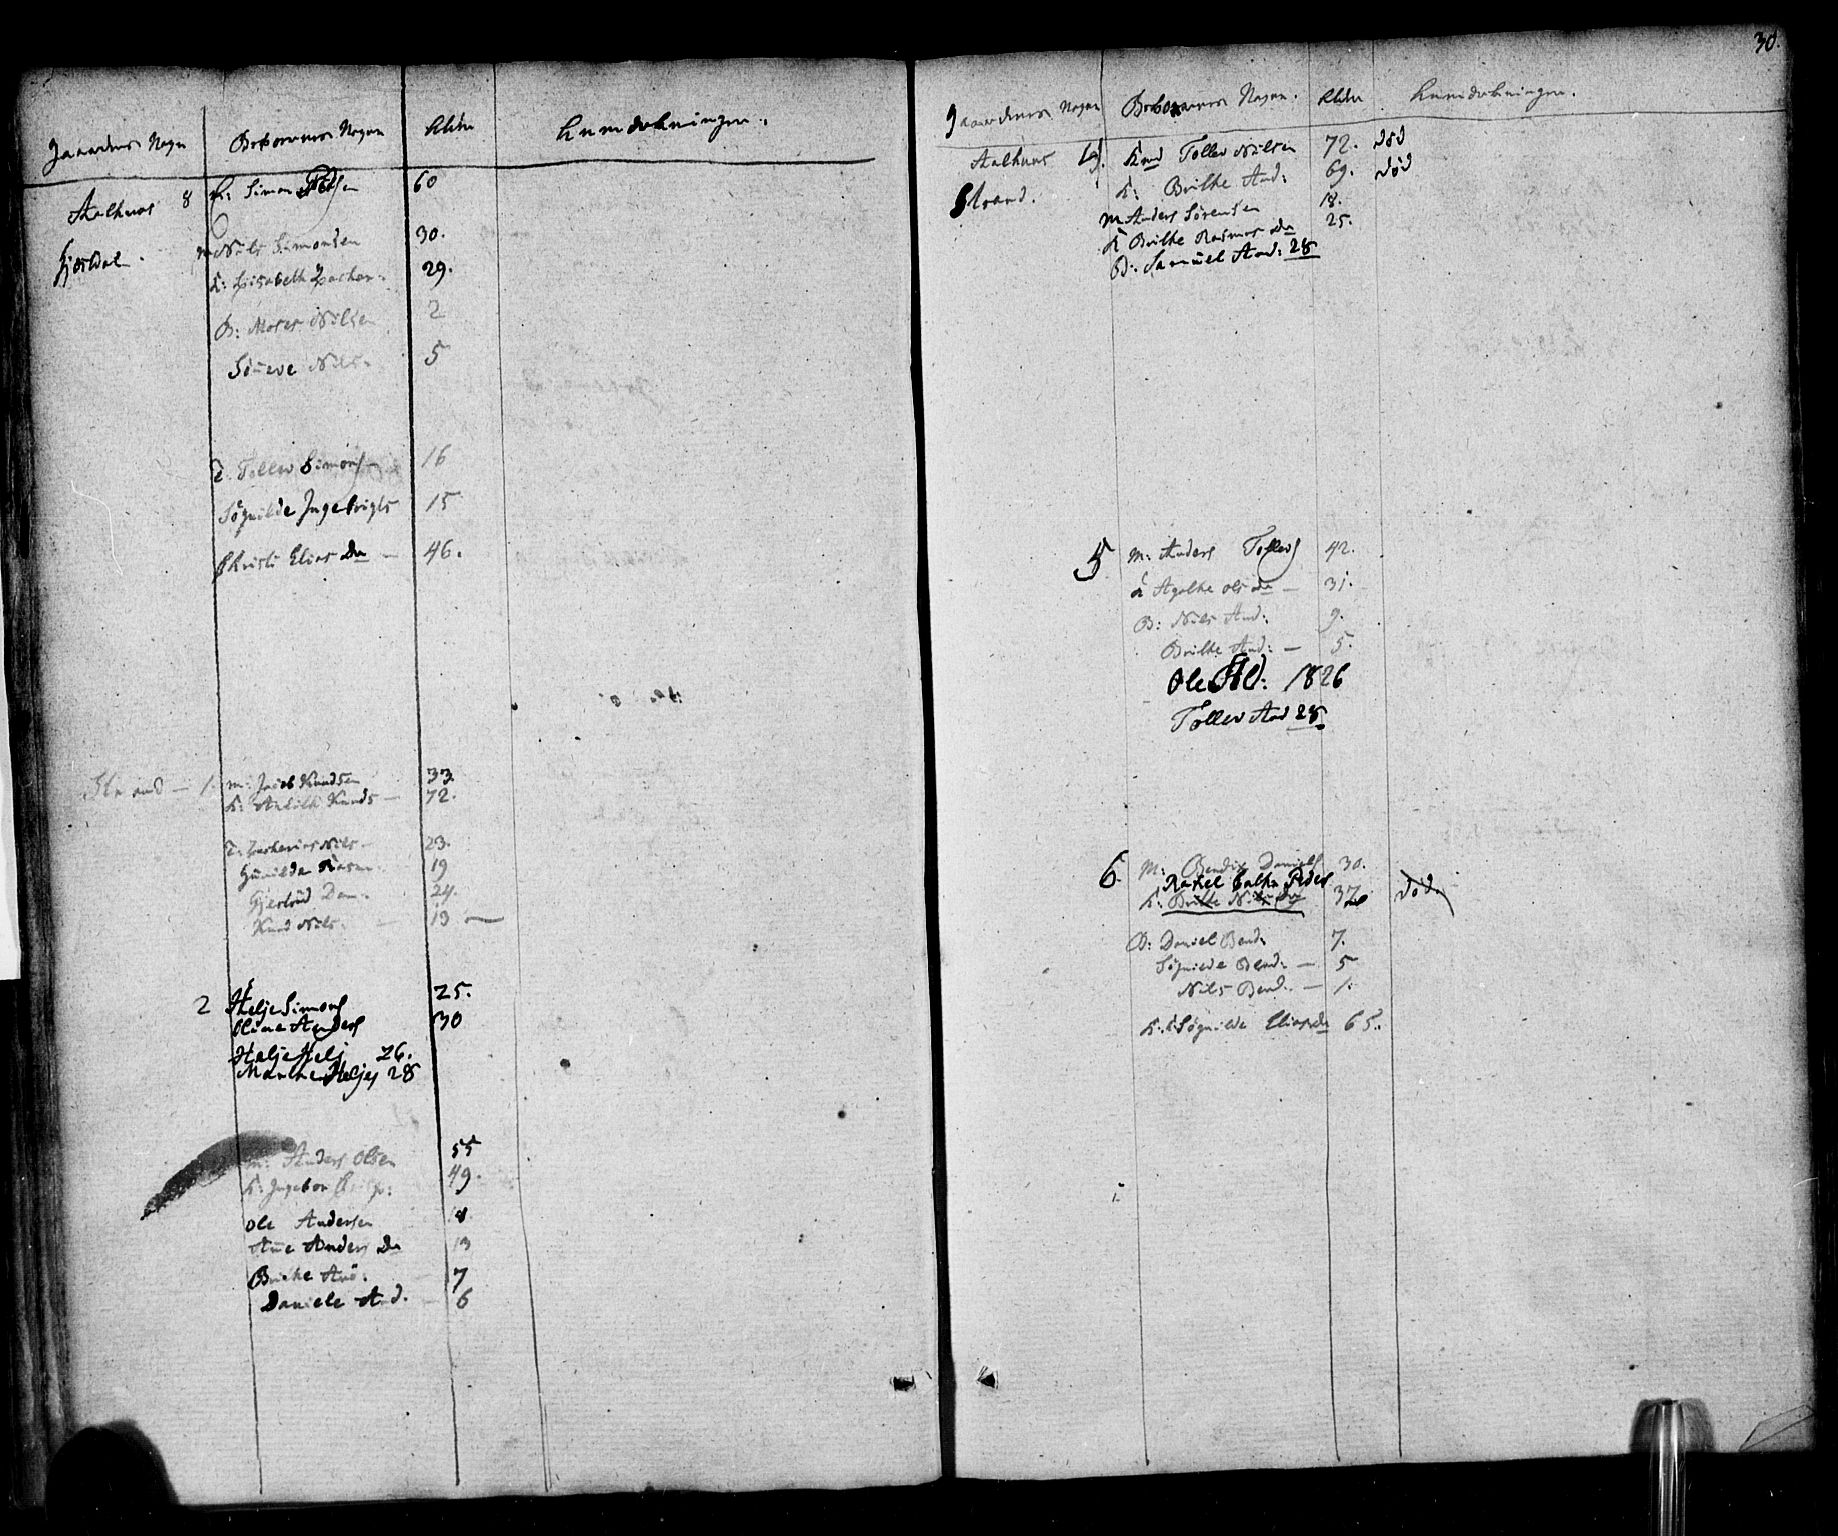 Gaardenes Nagn Beboernes Nagn Alder Anmerkninger.
Aalhuus 8 Simon 60
Gjesdal. m Nils Simonsen 30.
K: Lisabeth Zachar. 29.
B: Moses Nilsen 2
Nils 5
T. Tollev Simons 16
Sögnilde Ingebrigts 15
Christi Elias Da — 46.
Strand — 1. m: Jacob Knudsen 33.
K: Knuds — 72.
T. Zacharias Nils 23.
Gunilde Rasm. 19
Gjertrud Dan. 24.
Knud Nils. 13 —
2 Helje Simons 25.
Oline Anders 30
Helje Helj 26.
Marthe Heljes 28
m: Anders Olsen 55
K: Ingebor 49.
Ole Andersen 8
Ane Anders Da 13
Brithe And: 7
Daniele And. 6
30.
Gaardenes Nagn Beboernes Nagn. Alder Anmerkninger.
Aalhuus Tollev Nilsen 72. död
Strand. K: Brithe And: 69. död
m Anders Sörensen 18.
K Brithe Rasmus Da 25.
B: Samuel And: 28
5 m: Anders Tollevs 42.
K Agathe Ols Da — 31.
B: Nils And: 9.
Brithe And: — 5.
Ole And: 1826
Tollev And 28.
6. M: Bendix Daniels 30.
Rakel Peders
K: Brithe Nils Da 37 död
B: Daniel Bend: 7.
Sögnilde Bend: — 5
Nils Bend: — 1.
K: Sögnilde Elias da 65.